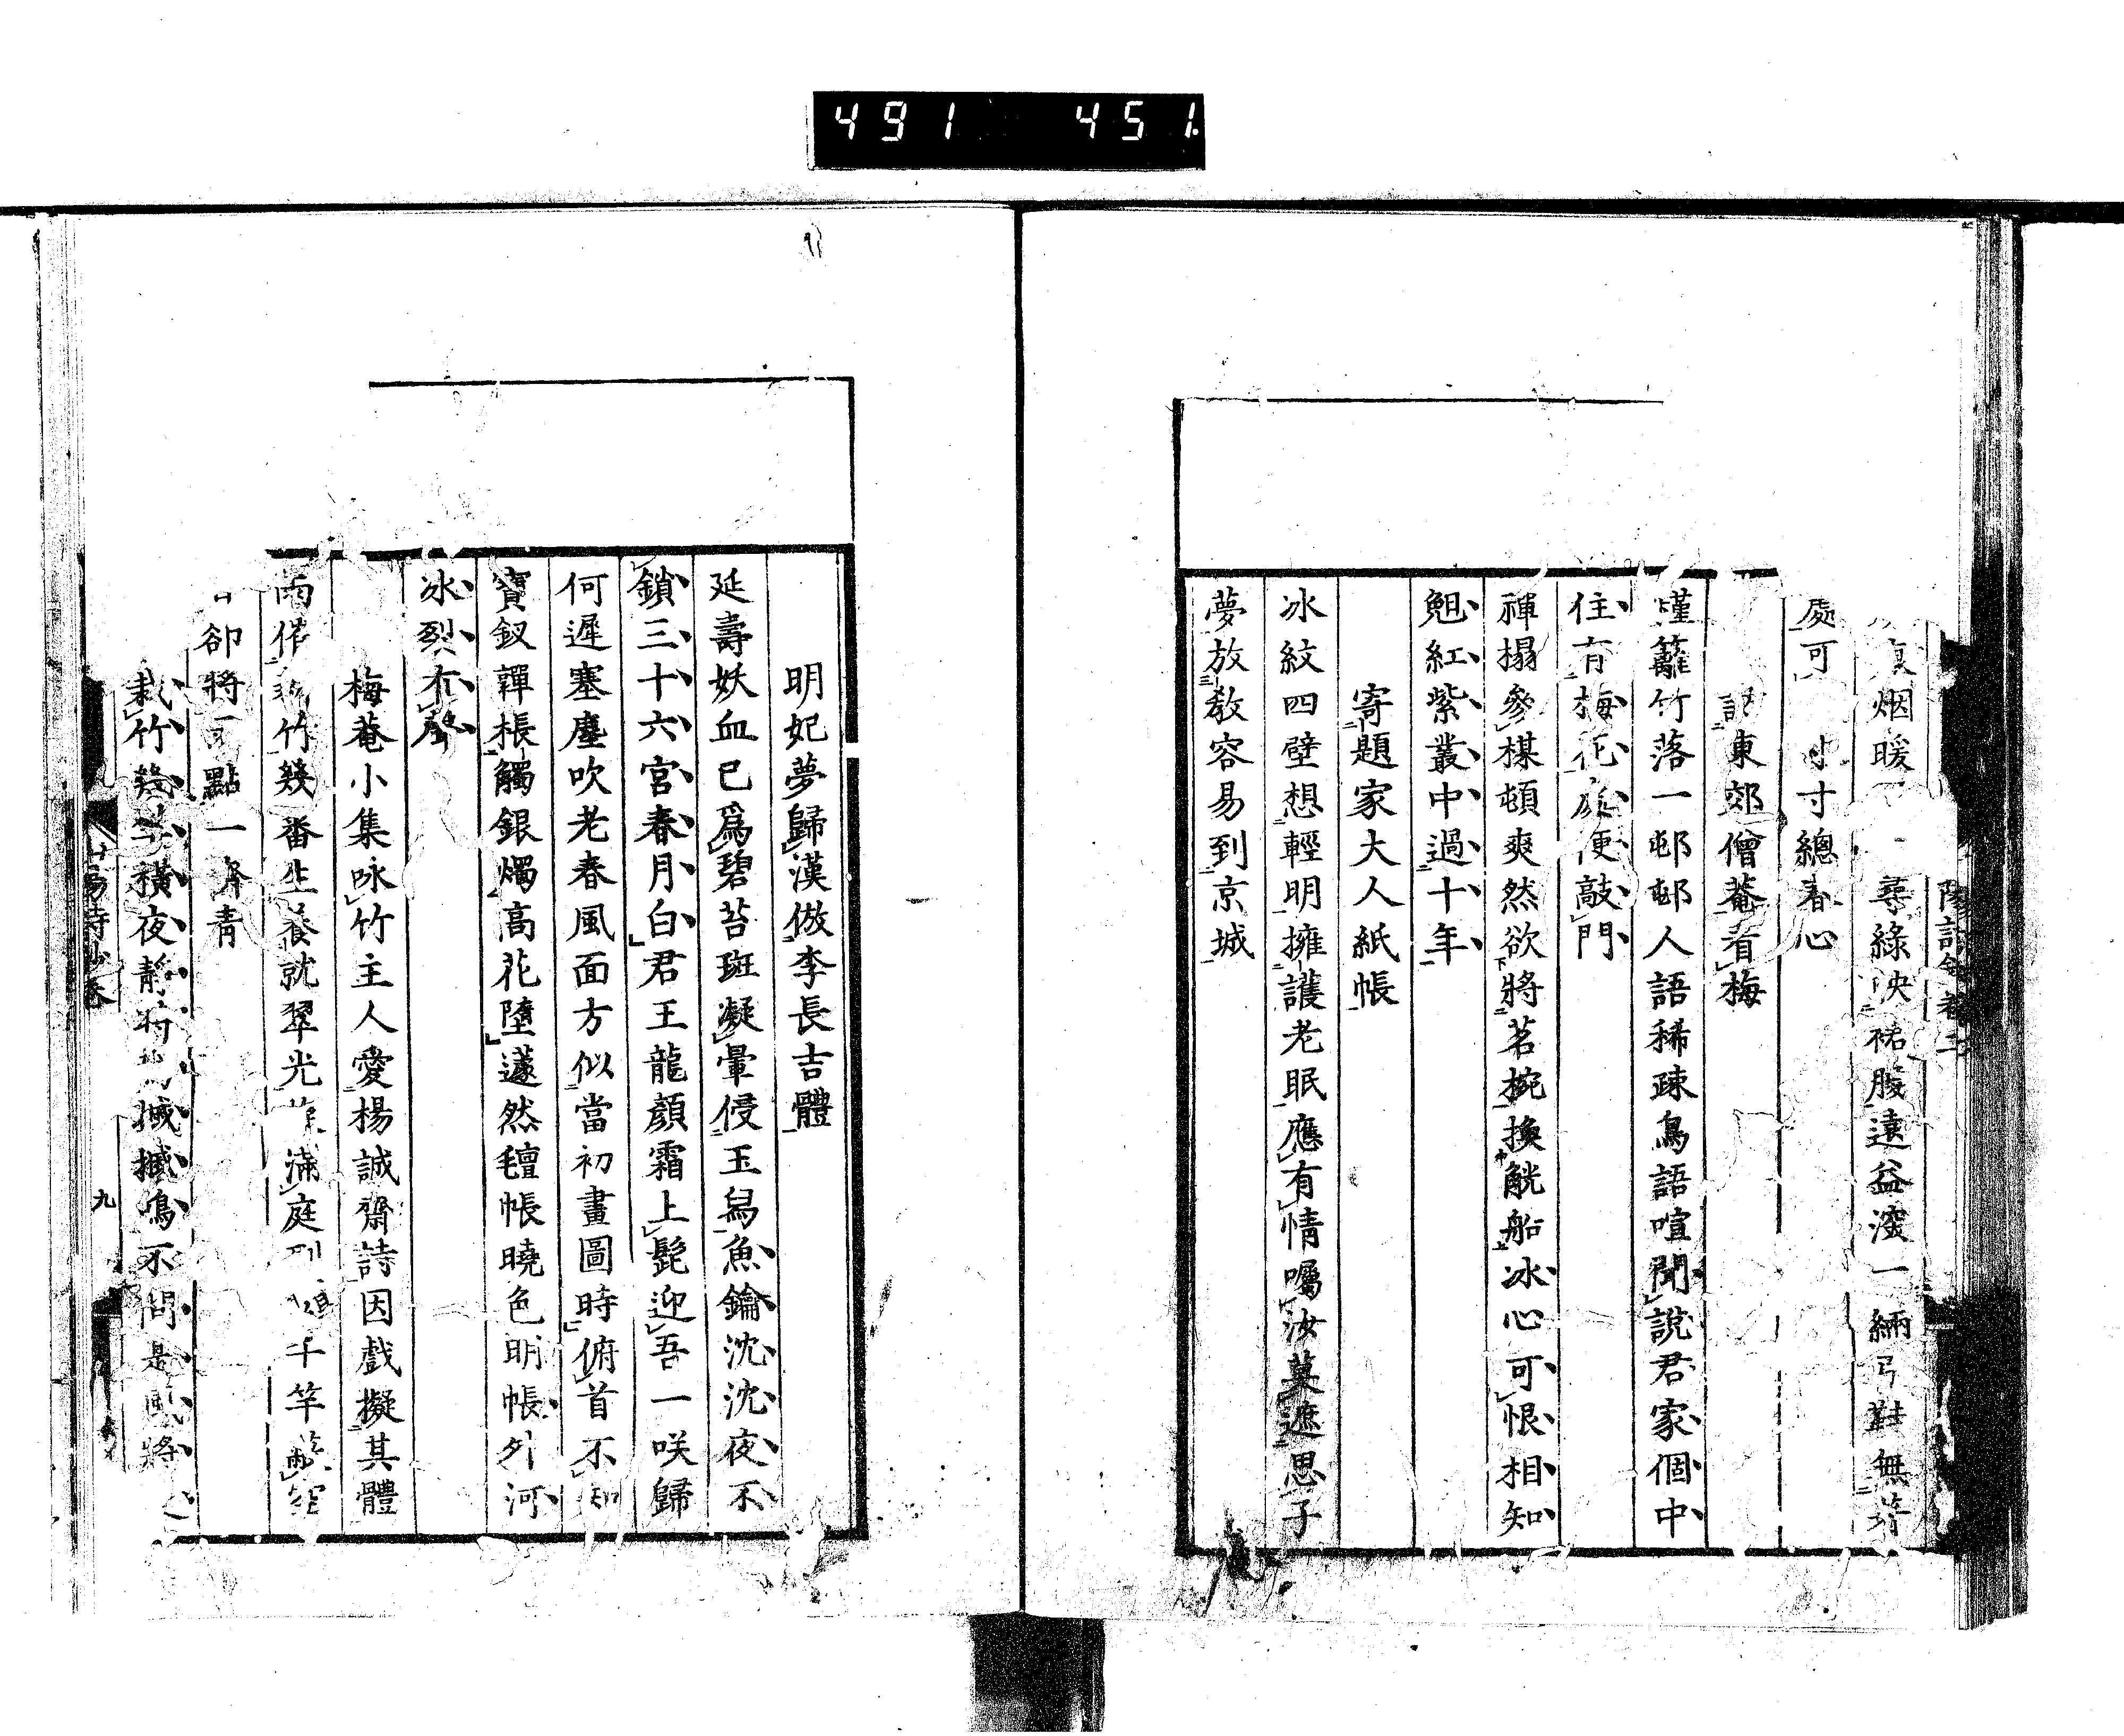 491 451
烟暖 尋綠 裙腰遠益濃一緉弓鞋無
處可 寸寸總春心
東郊僧菴看梅
槿籬竹落一邨邨人語稀疎鳥語喧聞說君家個中
住有梅花處便敲門
禪榻參棋頓爽然欲將茗椀換觥船冰心可恨相知
䰟紅紫叢中過十年
寄題家大人紙帳
冰紋四壁想輕明擁護老眠應有情囑汝莫遮思子
夢放教容易到京城
明妃夢歸漢倣李長吉體
延壽妖血已爲碧苔斑凝暈侵玉舄魚鑰沈沈夜不
鎖三十六宮春月白君王龍顏霜上髭迎吾一咲歸
何遲塞塵吹老春風面方似當初畫圖時俯首不知
寶釵嚲棖觸銀燭高花墮蘧然氈帳曉色明帳外河
冰裂有聲
梅菴小集咏竹主人愛楊誠齋詩因戲擬其體
雨 竹幾番生養就翠光 滿庭 千竿
卻將 點一 青
栽竹幾 橫夜靜 摵摵鳴不問是風將
九